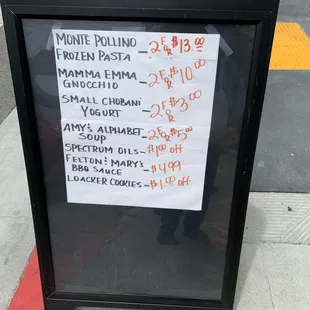 MONTE POLLINO
FROZEN PASTA – 2 FOR $13.00
MAMMA EMMA
GNOCCHIO – 2 FOR $10.00
SMALL CHOBANI
YOGURT – 2 FOR $3.00
AMY'S ALPHABET
SOUP – 2 FOR $5.00
SPECTRUM OILS – $1.00 off
FELTON & MARY'S
BBQ SAUCE – $4.99
LOACKER COOKIES – $1.00 off